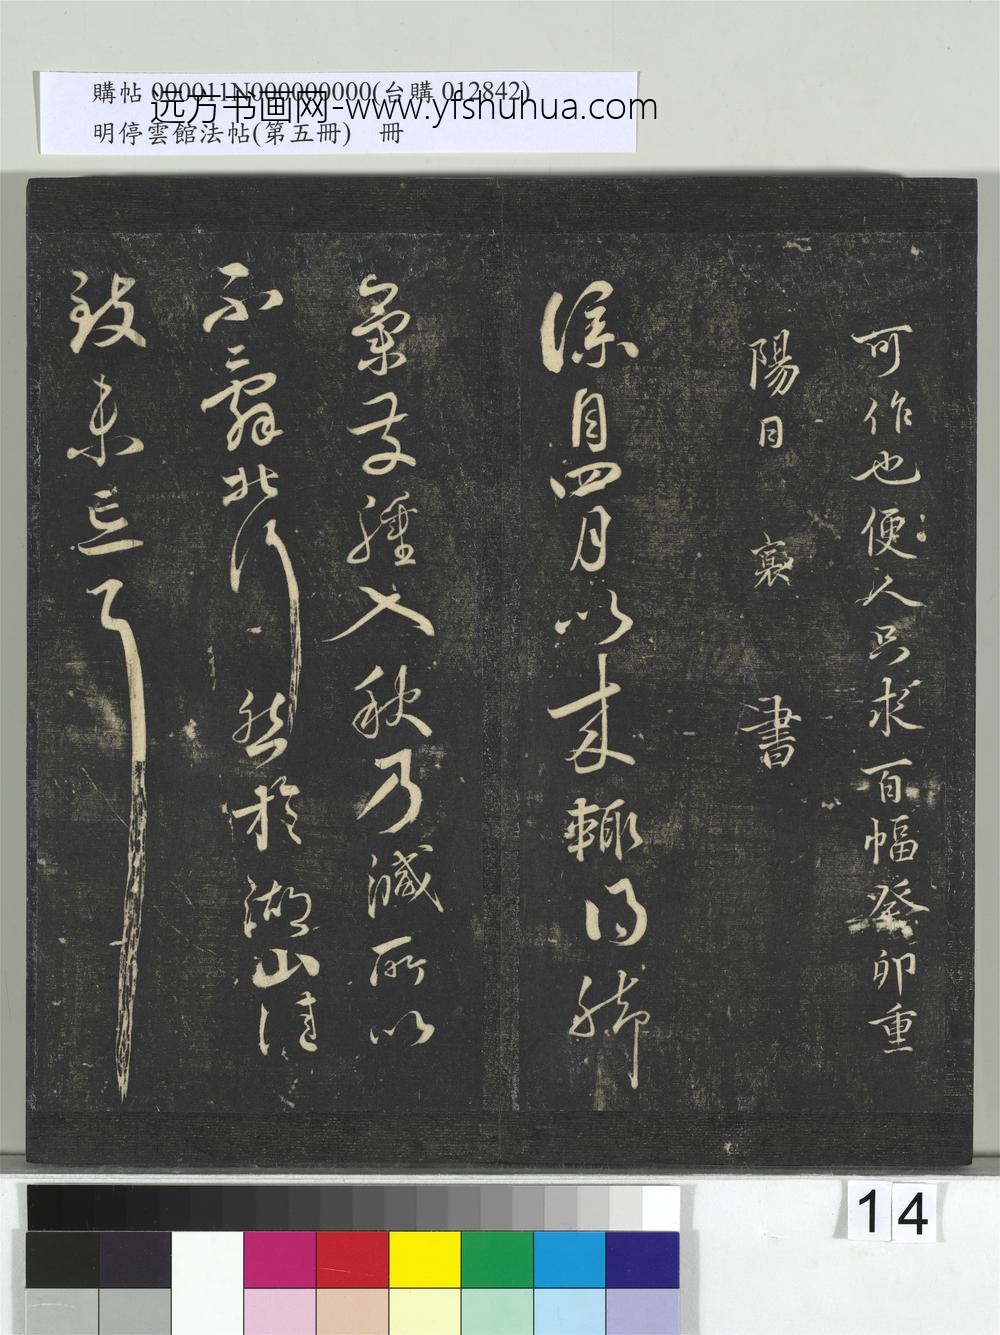 購帖 000011N000000000(台購 012842)
远方书画网-www.yfshuhua.com
明停雲館法帖(第五冊) 冊
可作也便人只求百幅癸卯重
陽日 襄 書
自四月以来輒得脚
氣發腫入秋乃減所以
不辭北行然於湖山佳
致未忘耳
14